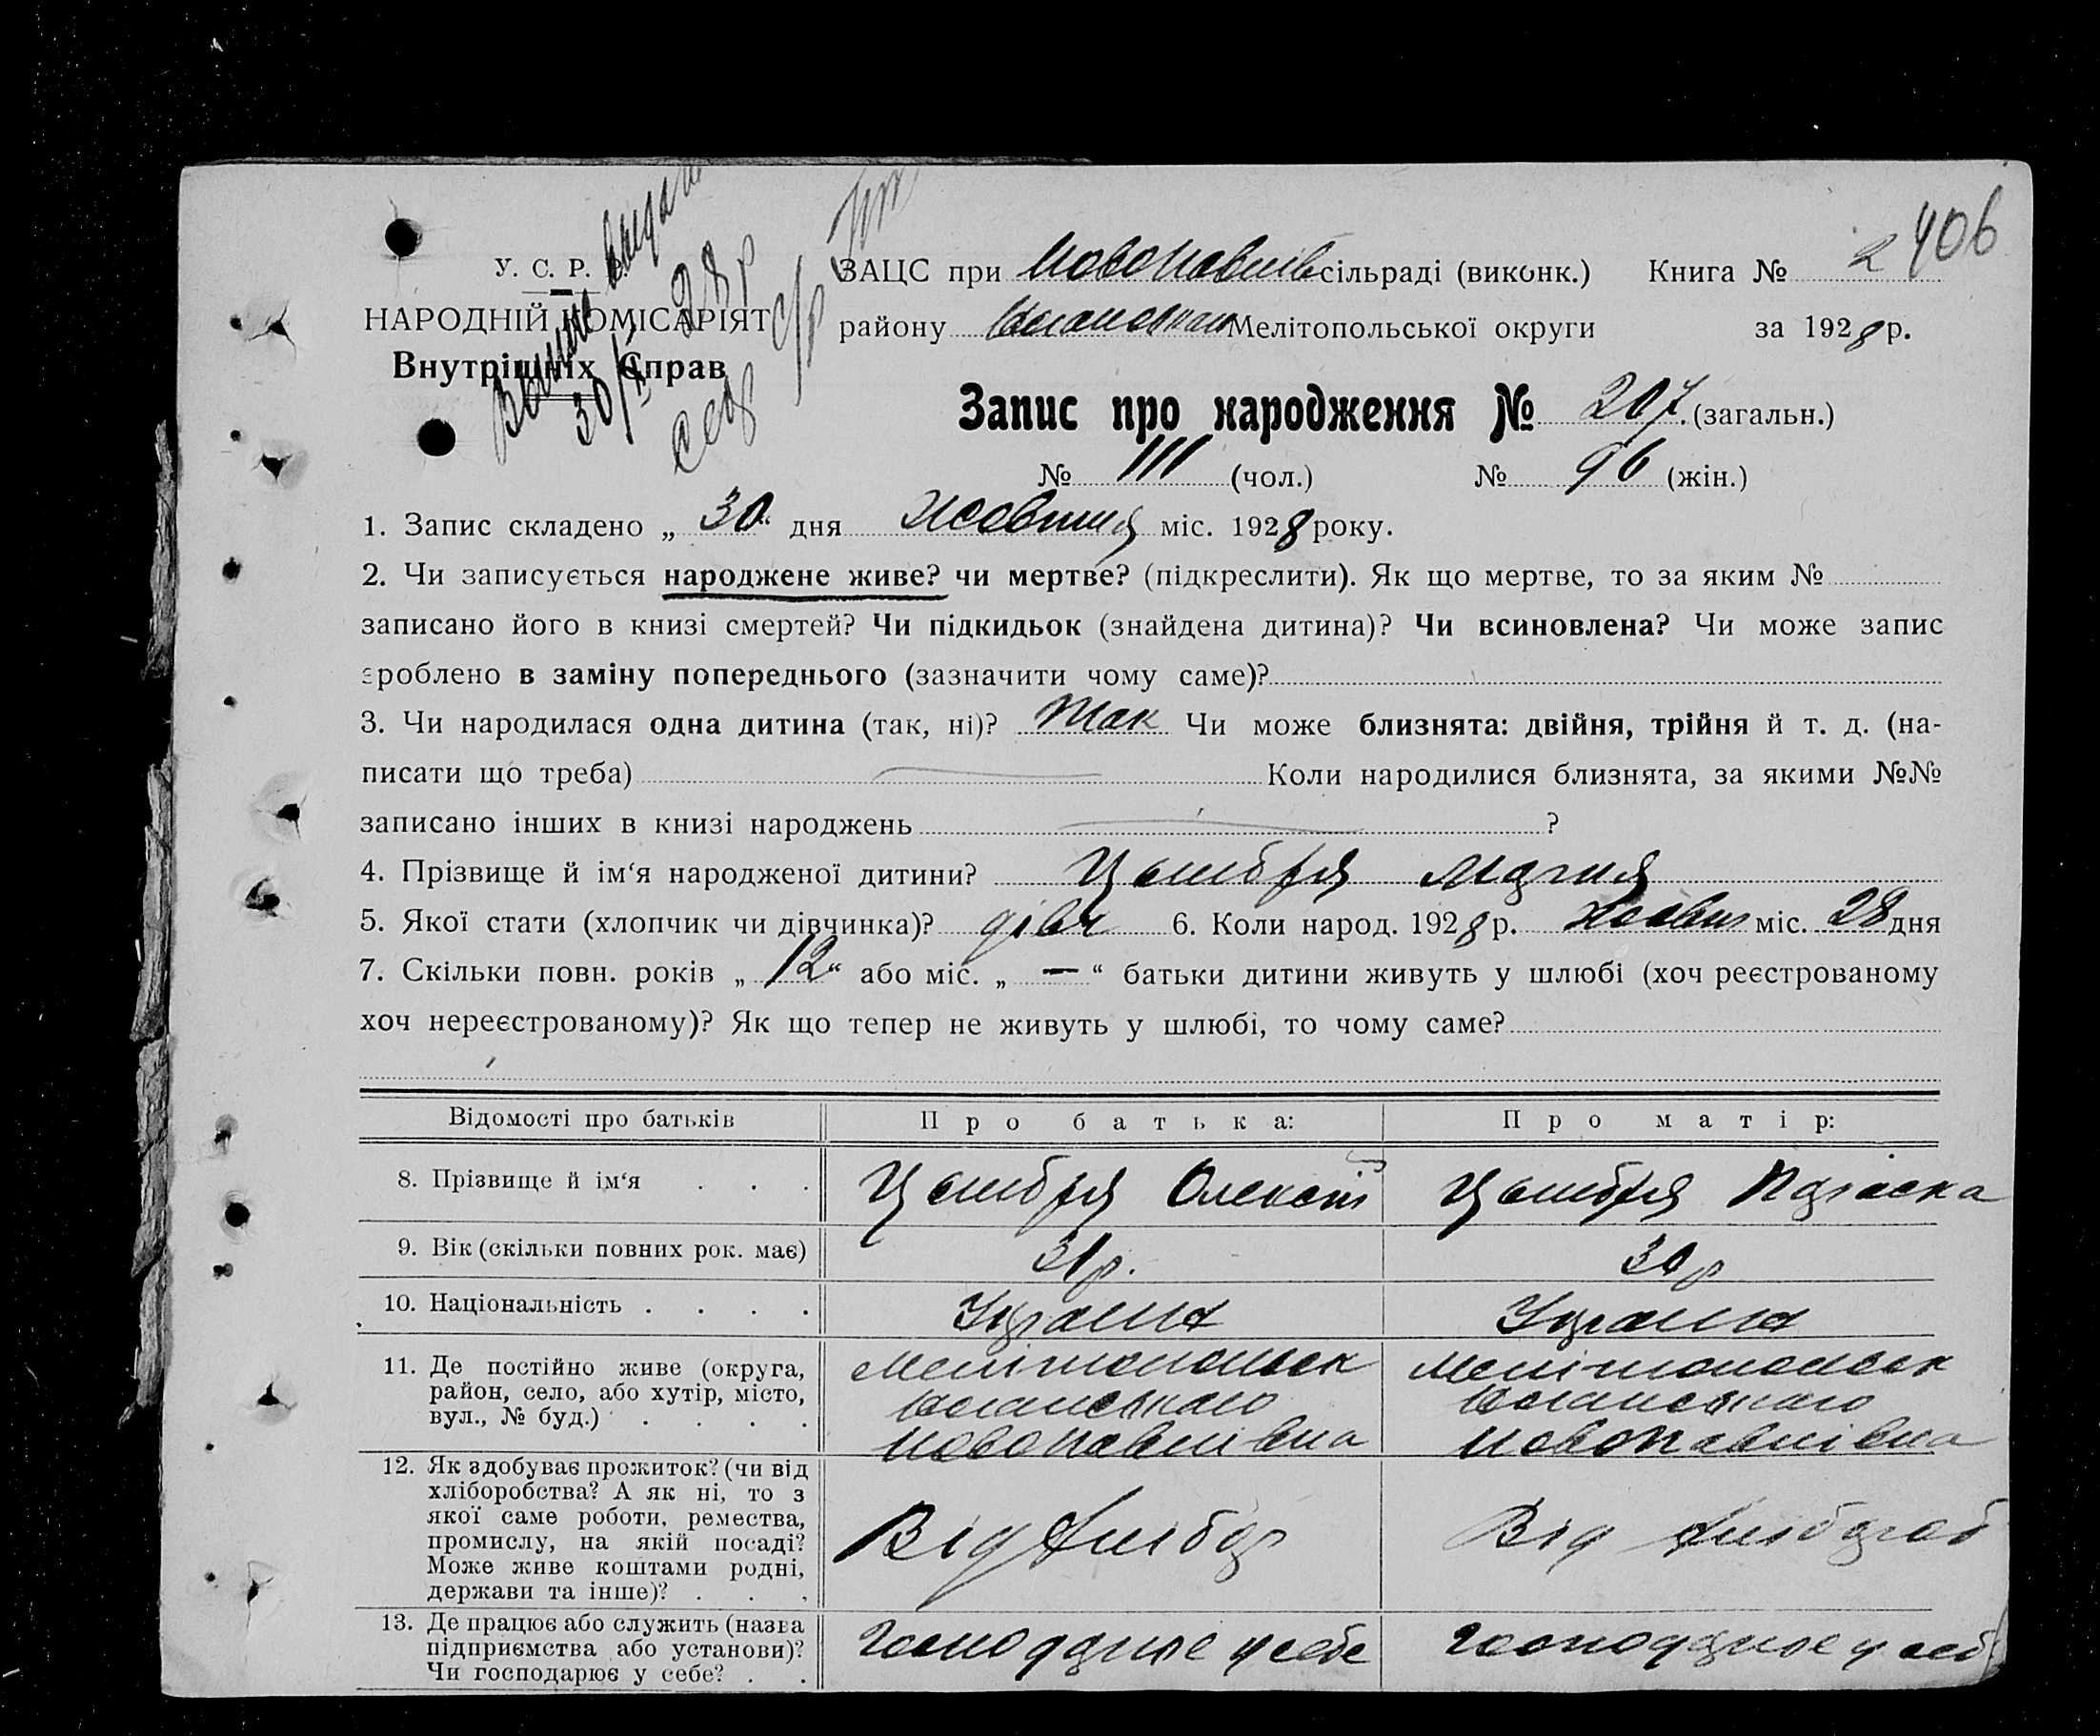 2 406
У. С. Р. Р.
НАРОДНІЙ КОМІСАРІЯТ
Внутрішніх Справ
30/X 28р
ЗАЦС при Новопавлівсільраді (виконк.) Книга №
району Мелітопольської округи за 1928р.
Запис про народження № 207. (загальн.)
№ 111 (чол.) № 96 (жін.)
1. Запис складено „ 30 “ дня Жовтня міс. 1928 року.
2. Чи записується народжене живе? чи мертве? (підкреслити). Як що мертве, то за яким №
записано його в книзі смертей? Чи підкидьок (знайдена дитина)? Чи всиновлена? Чи може запис
зроблено в заміну попереднього (зазначити чому саме)?
3. Чи народилася одна дитина (так, ні)? Так Чи може близнята: двійня, трійня й т. д. (на-
писати що треба) — Коли народилися близнята, за якими №№
записано інших в книзі народжень — ?
4. Прізвище й ім‘я народженої дитини? Марія
5. Якої стати (хлопчик чи дівчинка)? дівч 6. Коли народ. 1928р. Жовт міс. 28 дня
7. Скільки повн. років „ 12 “ або міс. „ — “ батьки дитини живуть у шлюбі (хоч реєстрованому
хоч нереєстрованому)? Як що тепер не живуть у шлюбі, то чому саме?
Відомості про батьків Про батька: Про матір:
8. Прізвище й ім‘я . . . Олексій
9. Вік (скільки повних рок. має) 31р. 30р
10. Національність . . . . Україн Україн
11. Де постійно живе (округа, Мелітопольск Мелітопольск
район, село, або хутір, місто,
вул., № буд.) . . . . Новопавлівка Новопавлівка
12. Як здобуває прожиток? (чи від
хліборобства? А як ні, то з
якої саме роботи, ремества, Від хлібор Від хлібороб
промислу, на якій посаді?
Може живе коштами родні,
держави та інше)? . . .
13. Де працює або служить (назва господарює у себе господарює у себ
підприємства або установи)?
Чи господарює у себе? . .